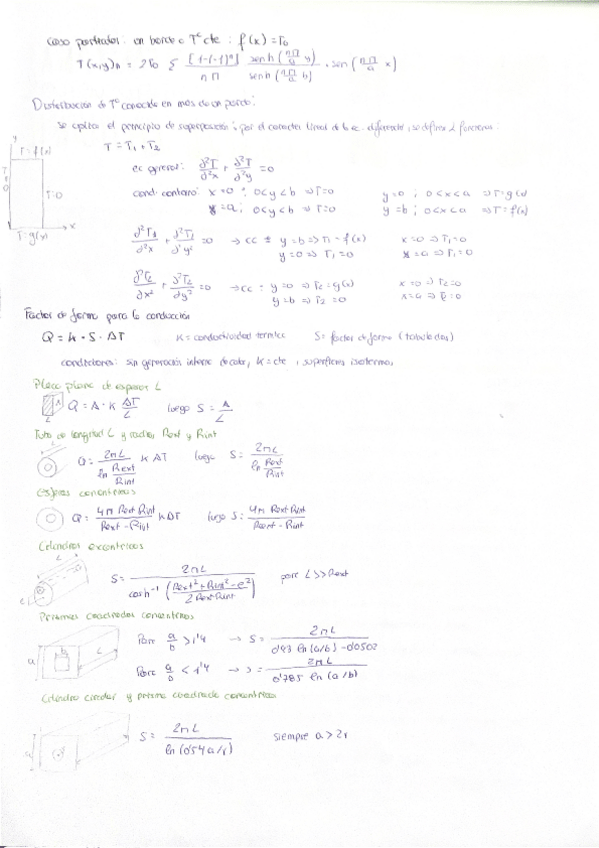 caso particular: un borde a Tª cte : f(x) = T₀
T(x,y)n = 2T₀ Σ [1-(-1)ⁿ] / nπ · senh(nπ/a y) / senh(nπ/a b) · sen(nπ/a x)
Distribución de Tª conocida en mas de un borde:
se aplica el principio de superposición, por el caracter lineal de la ec. diferencial, se definen 2 funciones:
T = T₁ + T₂
ec general: ∂²T/∂²x + ∂²T/∂²y = 0
cond. contorno: x=0 ; 0<y<b ⇒ T=0 y=0 ; 0<x<a ⇒ T=g(x)
x=a ; 0<y<b ⇒ T=0 y=b ; 0<x<a ⇒ T=f(x)
T=f(x)
T=0
T=0
T=g(x)
y
x
∂²T₁/∂²x + ∂²T₁/∂²y = 0 → cc : y=b ⇒ T₁=f(x) x=0 ⇒ T₁=0
y=0 ⇒ T₁=0 x=a ⇒ T₁=0
∂²T₂/∂x² + ∂²T₂/∂y² = 0 → cc : y=0 ⇒ T₂=g(x) x=0 ⇒ T₂=0
y=b ⇒ T₂=0 x=a ⇒ T₂=0
Factor de forma para la conducción
Q = K · S · ΔT K = conductividad termica S = factor de forma (tabulados)
condiciones: sin generación interna de calor, K=cte, superficies isotermas
Placa plana de espesor L
Q = A · K ΔT/L luego S = A/L
Tubo de longitud L y radios Rext y Rint
Q = 2πL / ln(Rext/Rint) K ΔT luego S = 2πL / ln(Rext/Rint)
Esferas concentricas
Q = 4π Rext Rint / (Rext - Rint) K ΔT luego S = 4π Rext Rint / (Rext - Rint)
Cilindros excentricos
S = 2πL / cosh⁻¹((Rext² + Rint² - e²) / 2 Rext Rint) para L >> Rext
Prismas cuadrados concentricos
Para a/b > 1'4 → S = 2πL / (0'93 ln(a/b) - 0'0502)
Para a/b < 1'4 → S = 2πL / (0'785 ln(a/b))
Cilindro circular y prisma cuadrado concentricos
S = 2πL / ln(0'54 a/r) siempre a > 2r